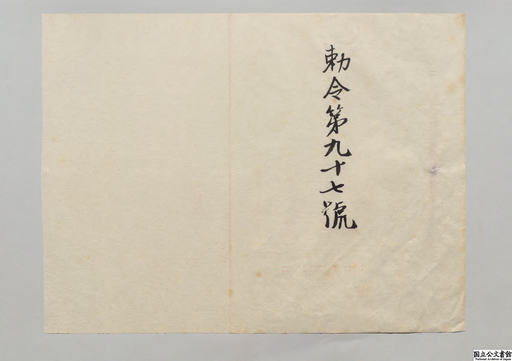 勅令第九十七號
国立公文書館
National Archives of Japan